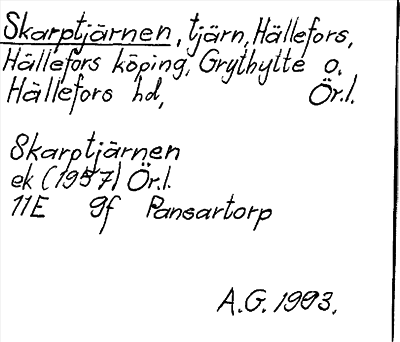 Skarptjärnen, tjärn, Hällefors,
Hällefors köping, Grythytte o.
Hällefors hd, Ör.l.
Skarptjärnen
ek (1957) Ör.l.
11E 9f Pansartorp
A.G. 1993.